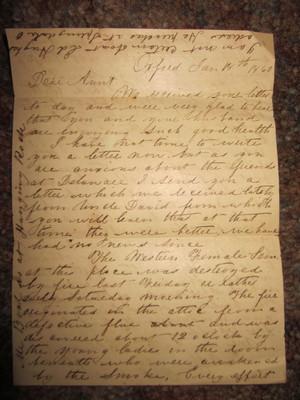 Oxford Jan 18th 1860
Dear Aunt
We received your letter
to day and were very glad to hear
that you and your husband
are enjoying such good health
I have not time to write
you a letter now but as you
are anxious about the friends
at Delaware I send you a
letter which we received lately
from Uncle David from which
you will learn that at that
time they were better we have
had no news since
The Western Female Sem.
at this place was destroyed
by fire last Friday or rather
Saturday morning. The fire
originated in the attic from a
defective flue and was
discovered about 12 o'clock by
the young ladies in the room
beneath who were awakened
by the smoke, Every effort